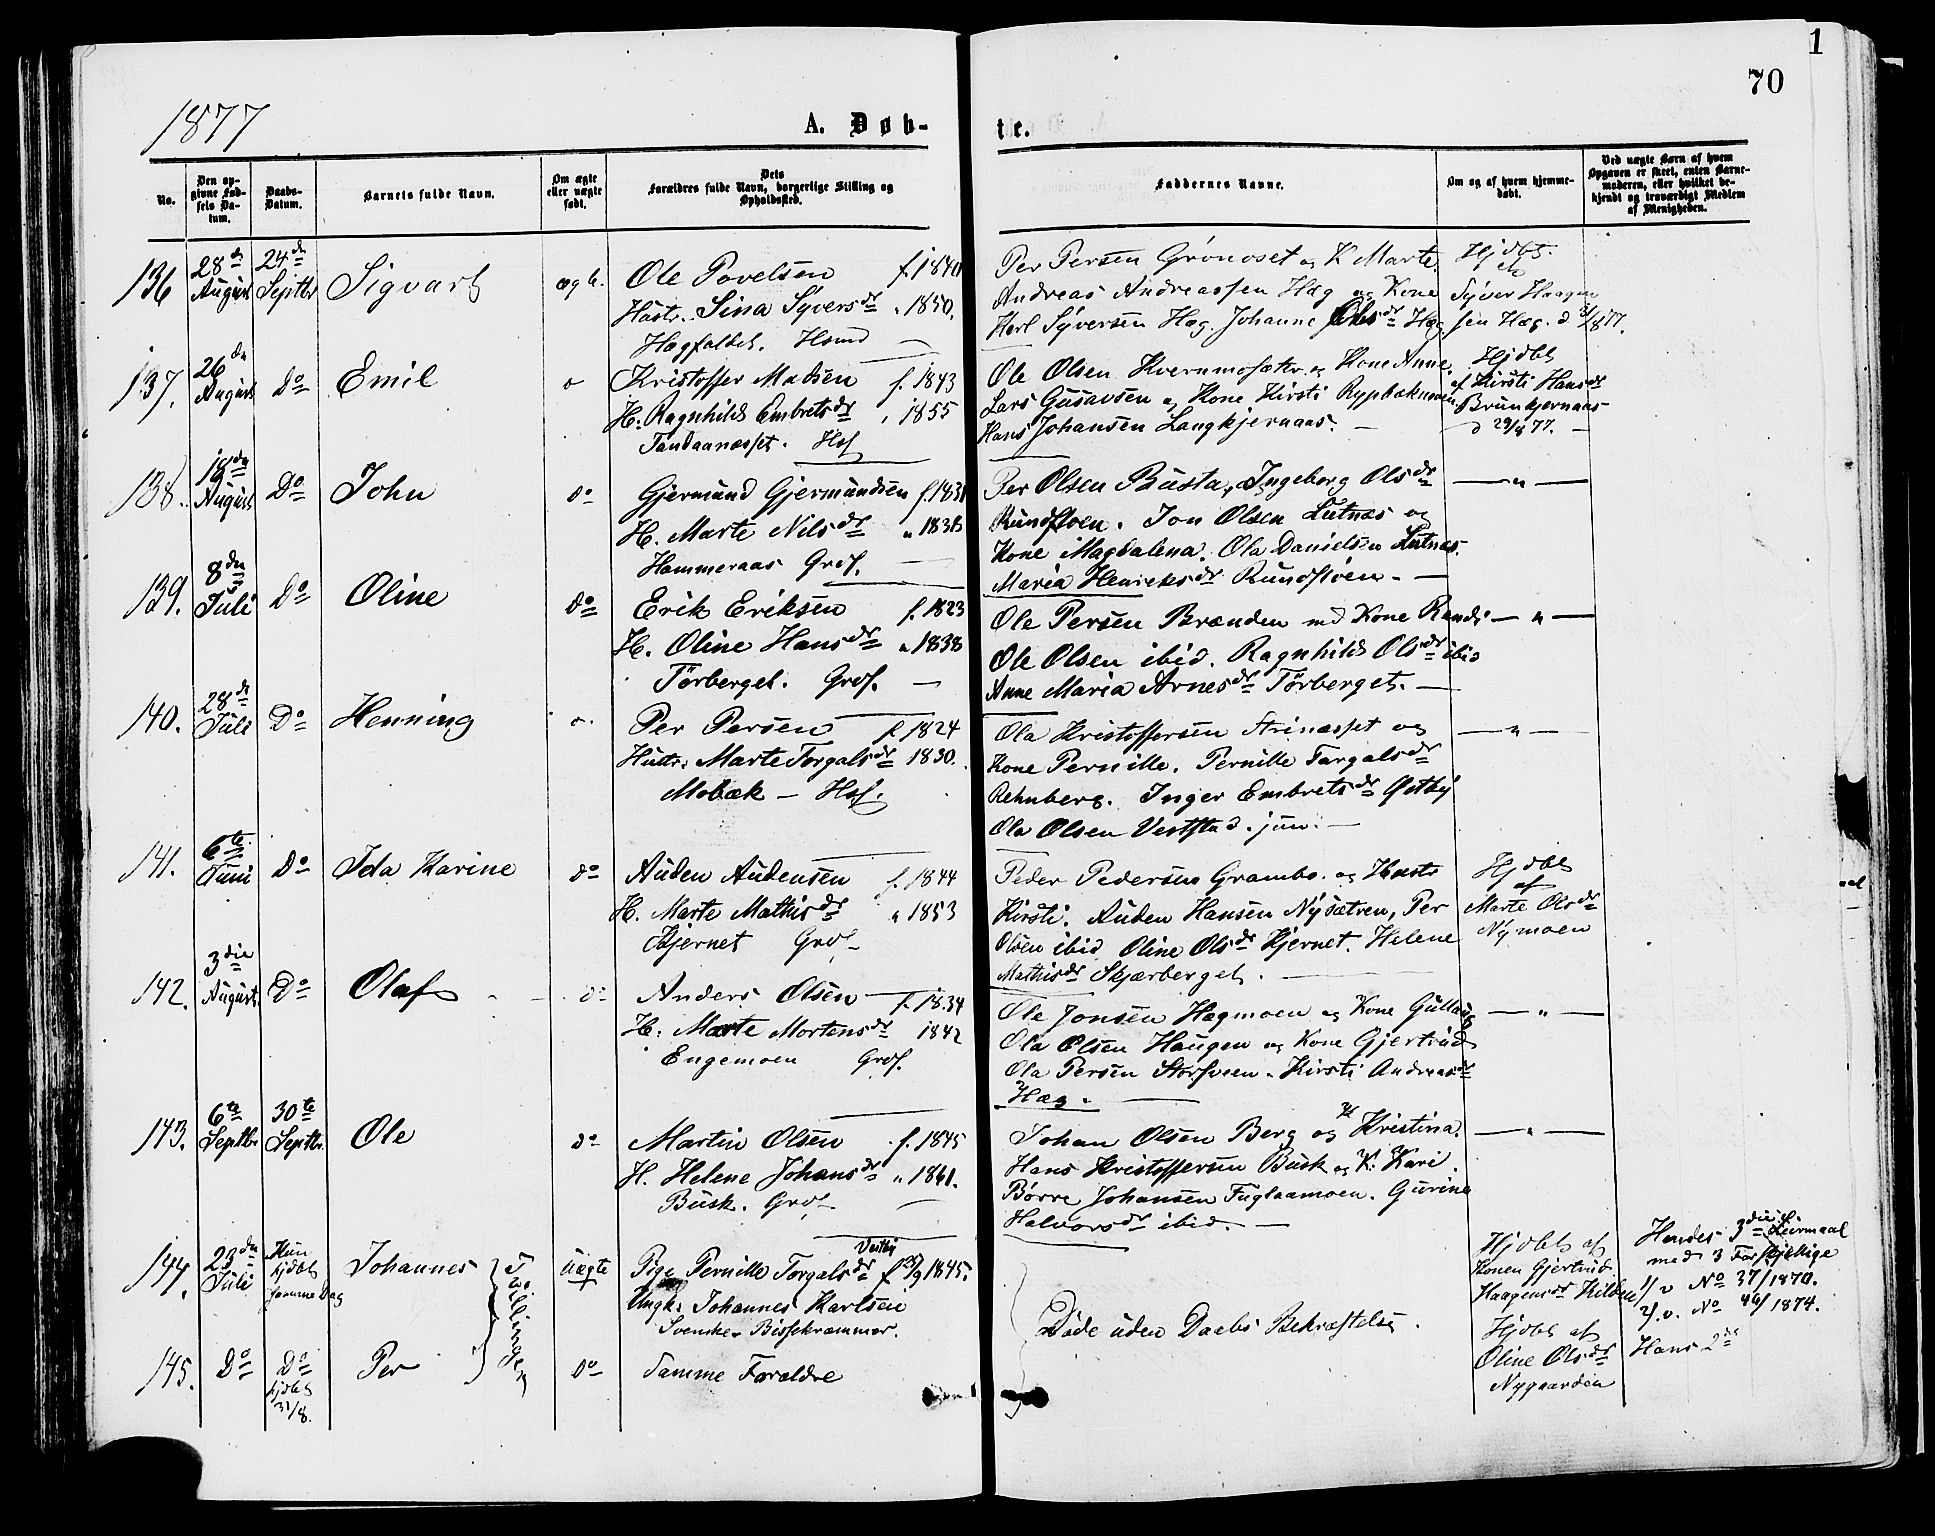 1
70
1877
A. Døb-
te.
No.
Den op-
givne Fød-
sels Da-
tum.
Daabs-
Datum.
Barnets fulde Navn.
Om ægte
eller uægte
født.
Dets
Forældres fulde Navn, borgerlige Stilling og
Opholdssted.
Faddernes Navne.
Om og af hvem hjemme-
døbt.
Ved uægte Børn af hvem
Opgaven er skeet, enten Barne-
moderen, eller hvilket be-
kjendt og troværdigt Medlem
af Menigheden.
136
28de
August
24de
Septbr
Sigvart
ægt.
Ole Povelsen f. 1840
Hustr. Sina Syversdr " 1850.
Hægfaldet. Hsmd
Per Persen Grønoset og K. Marte.
Andreas Andreassen Hæg og Kone
Karl Syversen Hæg. Johanne Olsdr Hæg
Hjdbt.
Syver Haagen
sen Hæg. d /877.
137.
26de
August
Do
Emil
Kristoffer Madsen f. 1843
H. Ragnhild Embretsdr " 1855
Tandaanesset. Hsf
Ole Olsen Kvernmosætr. og Kone Anne.
Lars Gustavsen og Kone Kirsti Rypbakmoen
Hans Johansen Langkjernaas.
Hjdbt
af Kirsti Hansdr
Brunkjernaas
d 29/8 77.
138.
18de
August
Do
John
do
Gjermund Gjermundsen f. 1831
H. Marte Nilsdr " 1836
Hammeraas Grdf.
Per Olsen Busta, Ingeborg Olsdr
Rundfloen. Jon Olsen Lutnes og
Kone Magdalena. Ola Danielsen Lutnes.
Maria Henriksdr Rundfloen.
139.
8de
Juli
Do
Oline
do
Erik Eriksen f. 1823
H. Oline Hansdr " 1838
Tørberget. Grdf.
Ole Persen Brænden med Kone Randi
Ole Olsen ibid. Ragnhild Olsdr ibid
Anne Maria Arnesdr Tørberget.
140.
28de
Juli
Do
Henning
Per Persen f. 1824
Hustr. Marte Torgalsdr 1830.
Mobæk — Hsf.
Ola Kristoffersen Strinæsset og
Kone Pernille. Pernille Torgalsdr
Rehnberg. Inger Embretsdr Østby
Ola Olsen Veststad. jun.
141.
6te
Juni
Do
Ida Karine
do
Auden Audensen f. 1844
H. Marte Mathisdr " 1853
Kjernet Grdf
Peder Pedersen Grambo. og Hustr
Kirsti. Auden Hansen Nysætren, Per
Olsen ibid Oline Olsdr Kjernet. Helene
Mathisdr Skjærberget.
Hjdbt
af
Marte Olsdr
Nymoen
142.
3die
August
Do
Olaf
do
Anders Olsen f. 1834
H. Marte Mortensdr 1842
Engemoen Grdf.
Ole Jonsen Hægmoen og Kone Gullaug
Ola Olsen Haugen og Kone Gjertrud
Ola Persen Storsveen. Kirsti Andreasdr
Hæg.
143.
6te
Septbr
30te
Septbr.
Ole
do
Martin Olsen f. 1845
H. Helene Johansdr " 1841.
Busk. Grdf
Johan Olsen Berg og K Kristina.
Hans Kristoffersen Busk og K. Kari.
Børre Johansen Fuglaamoen. Gurine
Halvorsdr ibid.
144.
23de
Juli
Kun
hjdbt
samme Dag
Johannes
Tvillinger
uægte
Pige Pernille Torgalsdr Vestby f. /9 1845.
Ungk. Johannes Karlsen
Svenske Bissekræmmer.
Døde uden Daabs Bekræftelse.
Hjdbt af
Konen Gjertrud
Haagensdr Kilden
Hendes 3die Leiermaal
med 3 Forskjellige
1/ v No 37/1870.
2/. v. No 46/1874.
145.
Do
Do
hjdbt
31/8.
Per
do
Samme Forældre
Hjdbt af
Oline Olsdr
Nygaarden
Hans 2det